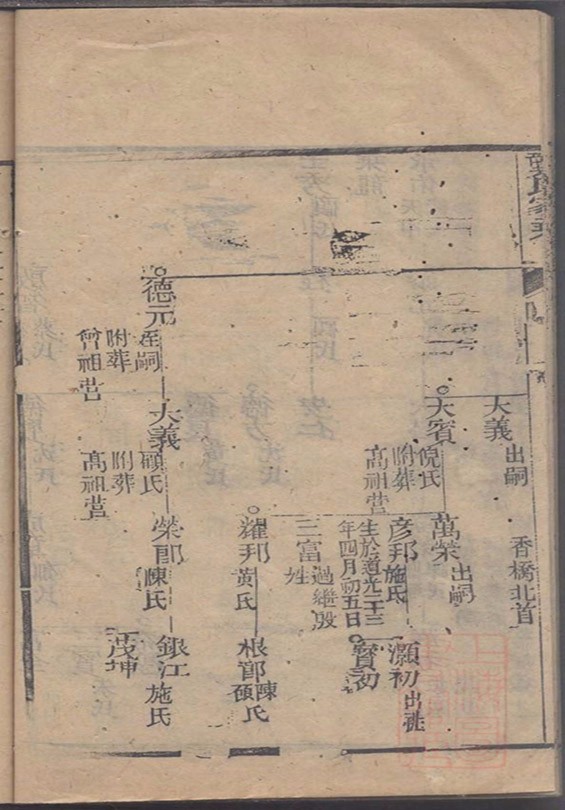 大義出嗣
香橋北首
大賓倪氏
附葬
高祖塋
萬榮出嗣
彥邦施氏
生於道光二十三
年四月初五日
三富過繼殷
姓
灝初出祧
寶初
耀邦黃氏
根郎陳氏
德元至嗣
附葬
曾祖塋
大義顧氏
附葬
高祖塋
榮郎陳氏
銀江施氏
茂坤